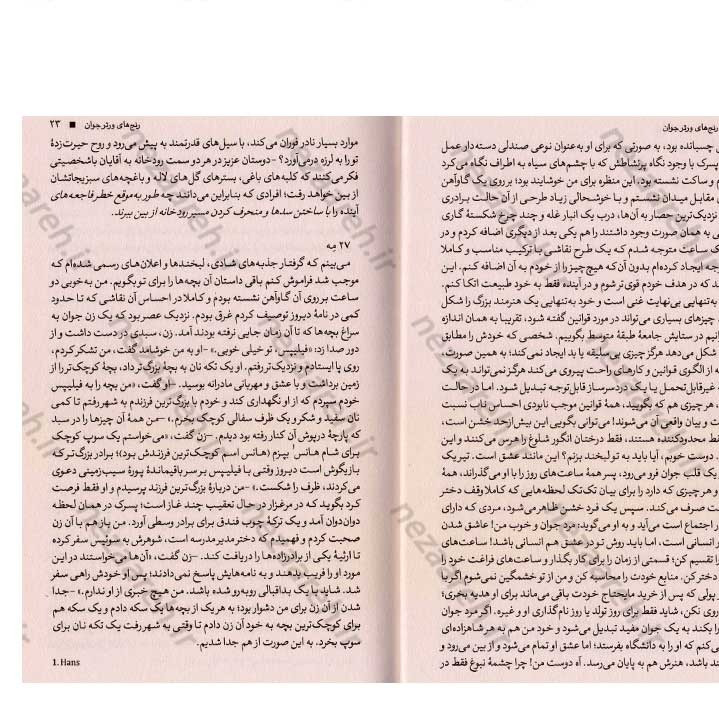 رنج‌های ورتر جوان
ی چسبانده بود، به صورتی که برای او به‌عنوان نوعی صندلی دسته‌دار عمل
پسرک با وجود نگاه پرنشاطش که با چشم‌های سیاه به اطراف نگاه می‌کرد
و ساکت نشسته بود. این منظره برای من خوشایند بود؛ بر روی یک گاوآهن
مقابل میدان نشستم و با خوشحالی زیاد طرحی از آن حالت برادری
نزدیک‌ترین حصار به آن‌ها، درب یک انبار غله و چند چرخ شکستهٔ گاری
ی به همان صورت وجود داشتند را هم یکی بعد از دیگری اضافه کردم و در
ک ساعت متوجه شدم که یک طرح نقاشی با ترکیب مناسب و کاملا
جه ایجاد کرده‌ام بدون آن‌که هیچ‌چیز را از خودم به آن اضافه کنم. این
ند که در هدف خودم قوی‌تر شوم و در آینده فقط به خود طبیعت اتکا کنم.
به‌تنهایی بی‌نهایت غنی است و خود به‌تنهایی یک هنرمند بزرگ را شکل
چیزهای بسیاری می‌تواند در مورد قوانین گفته شود، تقریبا به همان اندازه
وانیم در ستایش جامعهٔ طبقهٔ متوسط بگوییم. شخصی که خودش را مطابق
شکل می‌دهد هرگز چیزی بی‌سلیقه یا بد ایجاد نمی‌کند؛ به همین صورت،
ه از الگوی قوانین و کارهای راحت پیروی می‌کند هرگز نمی‌تواند به یک
غیرقابل‌تحمل یا یک دردسرساز قابل‌توجه تبدیل شود. اما در حالت
، هر چیزی هم که بگویید، همهٔ قوانین موجب نابودی احساس ناب نسبت
ت و بیان واقعی آن می‌شوند! می‌توانی بگویی این بیش‌ازحد خشن است،
قط محدودکننده هستند، فقط درختان انگور شلوغ را هرس می‌کنند و این
. دوست خوبم، آیا باید به تو لبخند بزنم؟ این مانند عشق است. تیر یک
یک قلب جوان فرو می‌رود، پسر همهٔ ساعت‌های روز را با او می‌گذراند، همهٔ
و هر چیزی که دارد را برای بیان تک‌تک لحظه‌هایی که کاملا وقف دختر
ت صرف می‌کند. سپس یک فرد خشن ظاهر می‌شود، مردی که دارای
اجتماع است می‌آید و به او می‌گوید: مرد جوان و خوب من! عاشق شدن
انسانی است، اما باید روش تو در عشق هم انسانی باشد! ساعت‌های
را تقسیم کن؛ قسمتی از زمان را برای کار بگذار و ساعت‌های فراغت خود را
دختر کن. منابع خودت را محاسبه کن و من از تو خشمگین نمی‌شوم اگر با
پولی که پس از خرید مایحتاج خودت باقی می‌ماند برای او هدیه بخری؛
روی نکن، شاید فقط برای روز تولد یا روز نام‌گذاری او و غیره. اگر مرد جوان
را بکند به یک جوان مفید تبدیل می‌شود و خود من هم به هر شاهزاده‌ای
ی کنم که او را به دانشگاه بفرستد؛ اما عشق او تمام می‌شود و از بین می‌رود و
ند باشد، هنرش هم به پایان می‌رسد. آه دوست من! چرا چشمهٔ نبوغ فقط در
رنج‌های ورتر جوان ■ ۲۳
موارد بسیار نادر فوران می‌کند، با سیل‌های قدرتمند به پیش می‌رود و روح حیرت‌زدهٔ
تو را به لرزه درمی‌آورد؟ -دوستان عزیز در هر دو سمت رودخانه به آقایان باشخصیتی
فکر می‌کنند که کلبه‌های باغی، بسترهای گل‌های لاله و باغچه‌های سبزیجاتشان
از بین خواهد رفت؛ افرادی که بنابراین می‌دانند چه طور به‌موقع خطر فاجعه‌های
آینده را با ساختن سدها و منحرف کردن مسیر رودخانه از بین ببرند.
۲۷ مه
می‌بینم که گرفتار جذبه‌های شادی، لبخندها و اعلان‌های رسمی شده‌ام که
موجب شد فراموش کنم باقی داستان آن بچه‌ها را برای تو بگویم. من به‌خوبی دو
ساعت بر روی آن گاوآهن نشسته بودم و کاملا در احساس آن نقاشی که تا حدود
کمی در نامهٔ دیروز توصیف کردم غرق بودم. نزدیک عصر بود که یک زن جوان به
سراغ بچه‌ها که تا آن زمان جایی نرفته بودند آمد. زن، سبدی در دست داشت و از
دور صدا زد: «فیلیپس، تو خیلی خوبی.» -او به من خوشامد گفت، من تشکر کردم،
روی پا ایستادم و نزدیک‌تر رفتم. او یک تکه نان به بچهٔ بزرگ‌تر داد، بچهٔ کوچک‌تر را از
زمین برداشت و با عشق و مهربانی مادرانه بوسید. -او گفت، «من بچه را به فیلیپس
خودم سپردم که از او نگهداری کند و خودم با بزرگ‌ترین فرزندم به شهر رفتم تا کمی
نان سفید و شکر و یک ظرف سفالی کوچک بخرم.» -من همهٔ آن چیزها را در سبد
که پارچهٔ درپوش آن کنار رفته بود دیدم. -زن گفت، «می‌خواستم یک سوپ کوچک
برای شام هانس¹ بپزم (هانس اسم کوچک‌ترین فرزندش بود)؛ برادر بزرگ‌ترکه
بازیگوش است دیروز وقتی با فیلیپس بر سر باقیماندهٔ پورهٔ سیب‌زمینی دعوی
می‌کردند، ظرف را شکست.» -من دربارهٔ بزرگ‌ترین فرزند پرسیدم و او فقط فرصت
کرد بگوید که در مرغزار در حال تعقیب چند غاز است؛ پسرک در همان لحظه
دوان‌دوان آمد و یک ترکهٔ چوب فندق برای برادر وسطی آورد. من باز هم با آن زن
صحبت کردم و فهمیدم که دختر مدیر مدرسه است، شوهرش به سوئیس سفر کرده
تا ارثیهٔ یکی از برادرزاده‌ها را دریافت کند. -زن گفت، «آن‌ها می‌خواستند در این
مورد او را فریب بدهند و به نامه‌هایش پاسخ نمی‌دادند؛ پس او خودش راهی سفر
شد. شاید با یک بداقبالی روبه‌رو شده باشد. من هیچ خبری از او ندارم.» -جدا
شدن از آن زن برای من دشوار بود؛ به هر یک از بچه‌ها یک سکه دادم و یک سکه هم
برای کوچک‌ترین بچه به خود آن زن دادم تا وقتی به شهر رفت یک تکه نان برای
سوپ بخرد. به این صورت از هم جدا شدیم.
1. Hans
nezaareh.ir